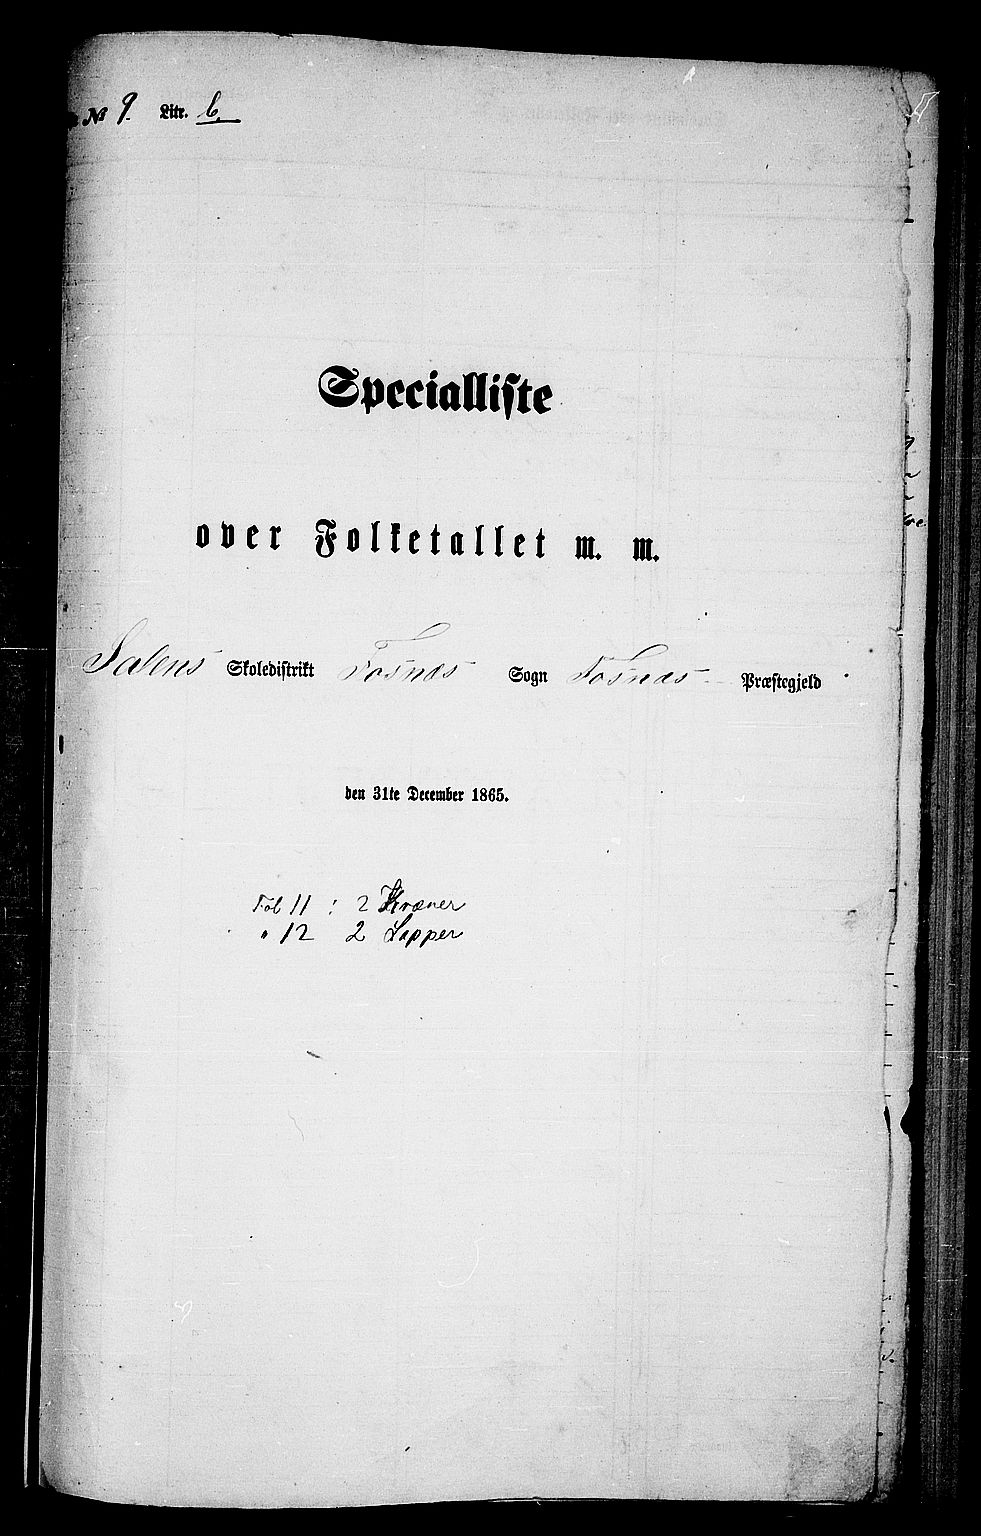 № 9. Litr. b.
Specialliste
over Folketallet m. m.
Salens Skoledistrikt Fosnæs Sogn Fosnæs Præstegjeld
den 31te December 1865.
Fol 11 : 2 Kvæner
" 12 2 Lapper